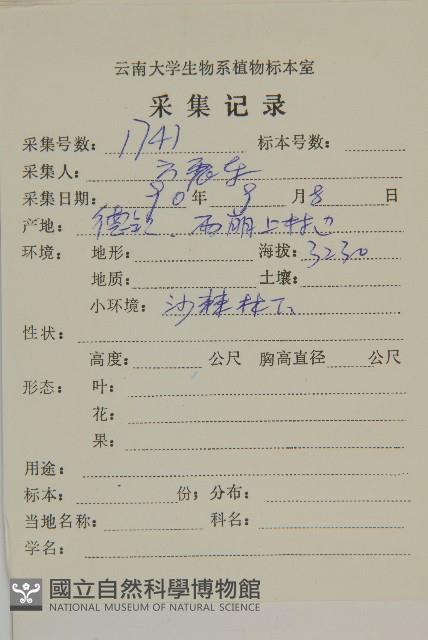 云南大学生物系植物标本室
采集记录
采集号数: 1741 标本号数:
采集人: 方震东
采集日期: 90年 9 月 8 日
产地: 德钦、西崩上村边
环境: 地形: 海拔: 3230
地质: 土壤:
小环境: 沙棘林下
性状:
高度: 公尺 胸高直径 公尺
形态: 叶:
花:
果:
用途:
标本: 份; 分布:
当地名称: 科名:
学名:
國立自然科學博物館
NATIONAL MUSEUM OF NATURAL SCIENCE